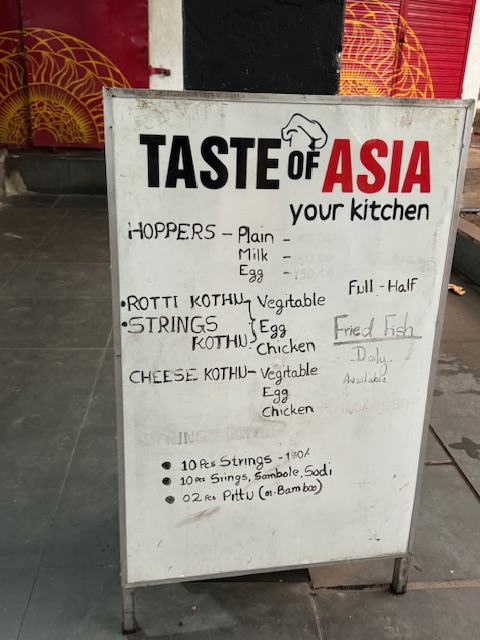 TASTE OF ASIA
your kitchen
HOPPERS - Plain -
Milk -
Egg -
Full - Half
•ROTTI KOTHU Vegitable
•STRINGS KOTHU Egg
Chicken
Fried Fish
Daly
Available
CHEESE KOTHU - Vegitable
Egg
Chicken
• 10 Pcs Strings -
• 10 Pcs Srings, Sambole, Sodi
• 02 Pcs Pittu (or Bamboo)